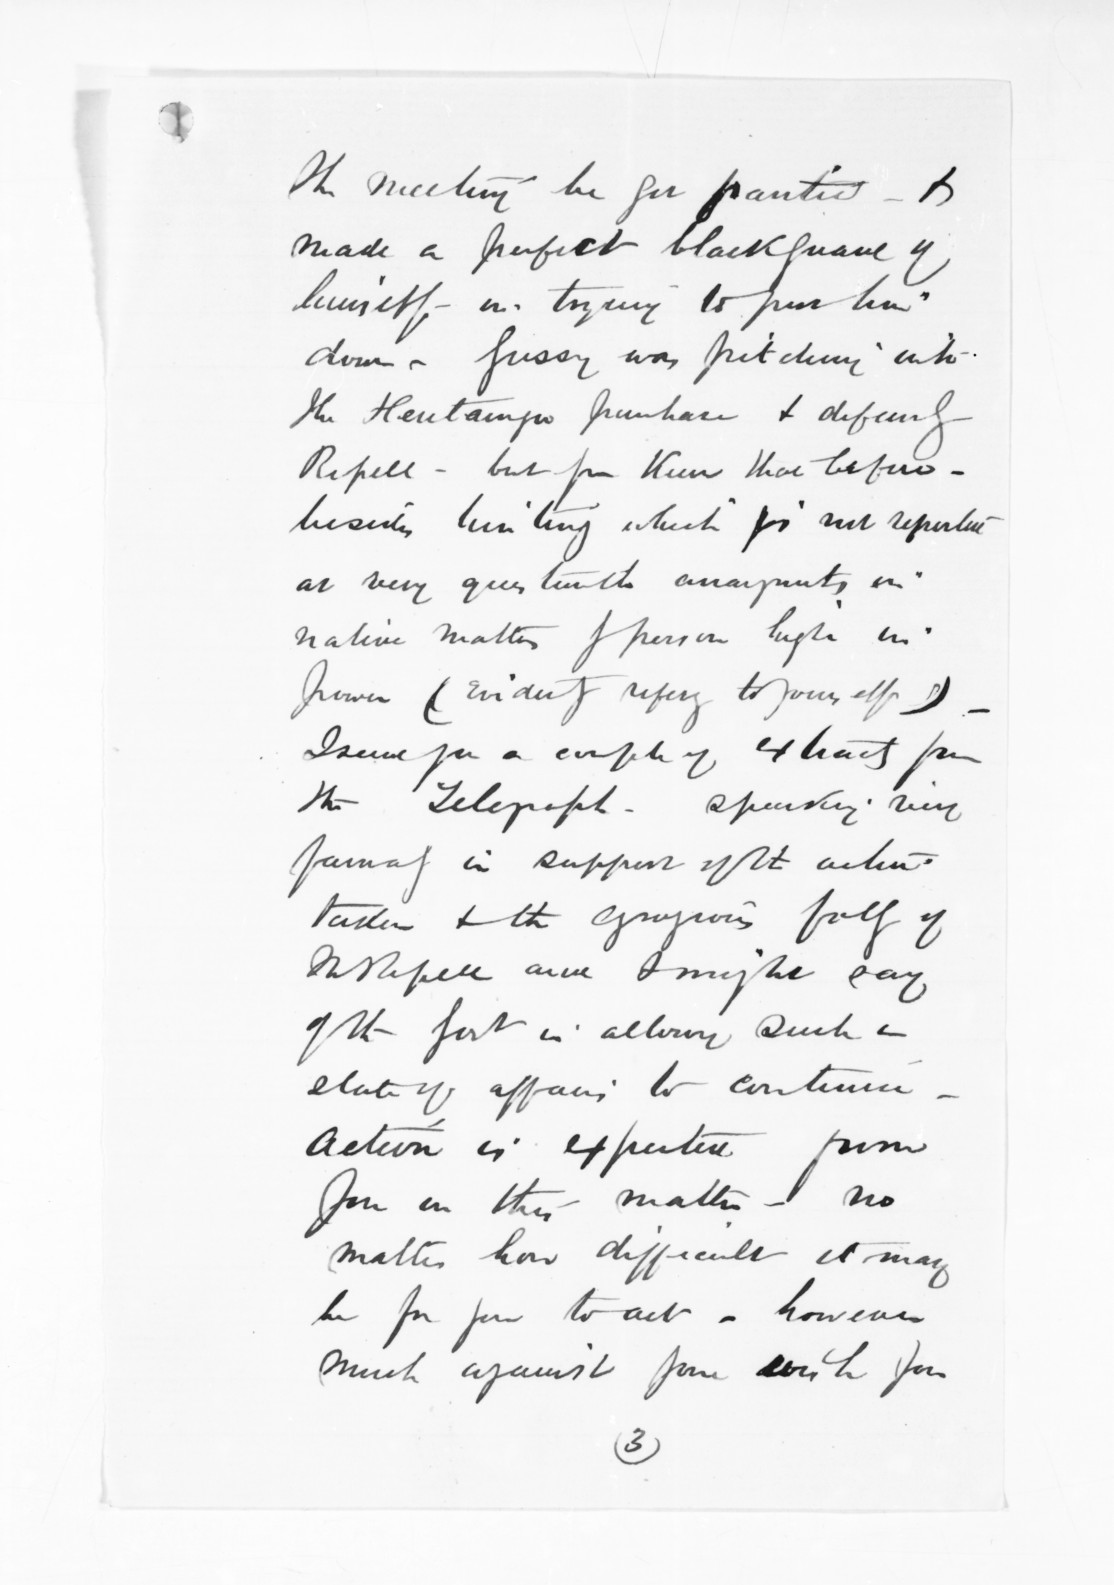 the meeting he got frantic - &
made a perfect blackguard of
himself - in trying to put him
down - Gussy was pitching into
the Heretaunga purchase & defending
Repell - but you knew that before -
besides hinting which is not reported
at very questionable arrangements in
native matters of person high in
power (Evidently refering to yourself) -
I send you a couple of extracts from
the Telegraph - speaking very
famously in support of the action
taken & the egregious folly of
Mr Repell and I might say
of the Govt in allowing such a
state of affairs to continue -
Action is expected from
you in this matter - no
matter how difficult it may
be for you to act - however
much against your wish you
(3)